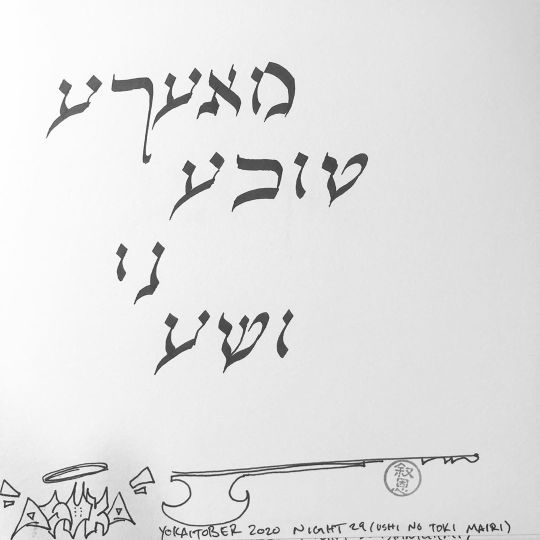 מאעךע
טוכע
ני
ושע
叙恩
YOKAITOBER 2020 NIGHT 29 (USHI NO TOKI MAIRI)